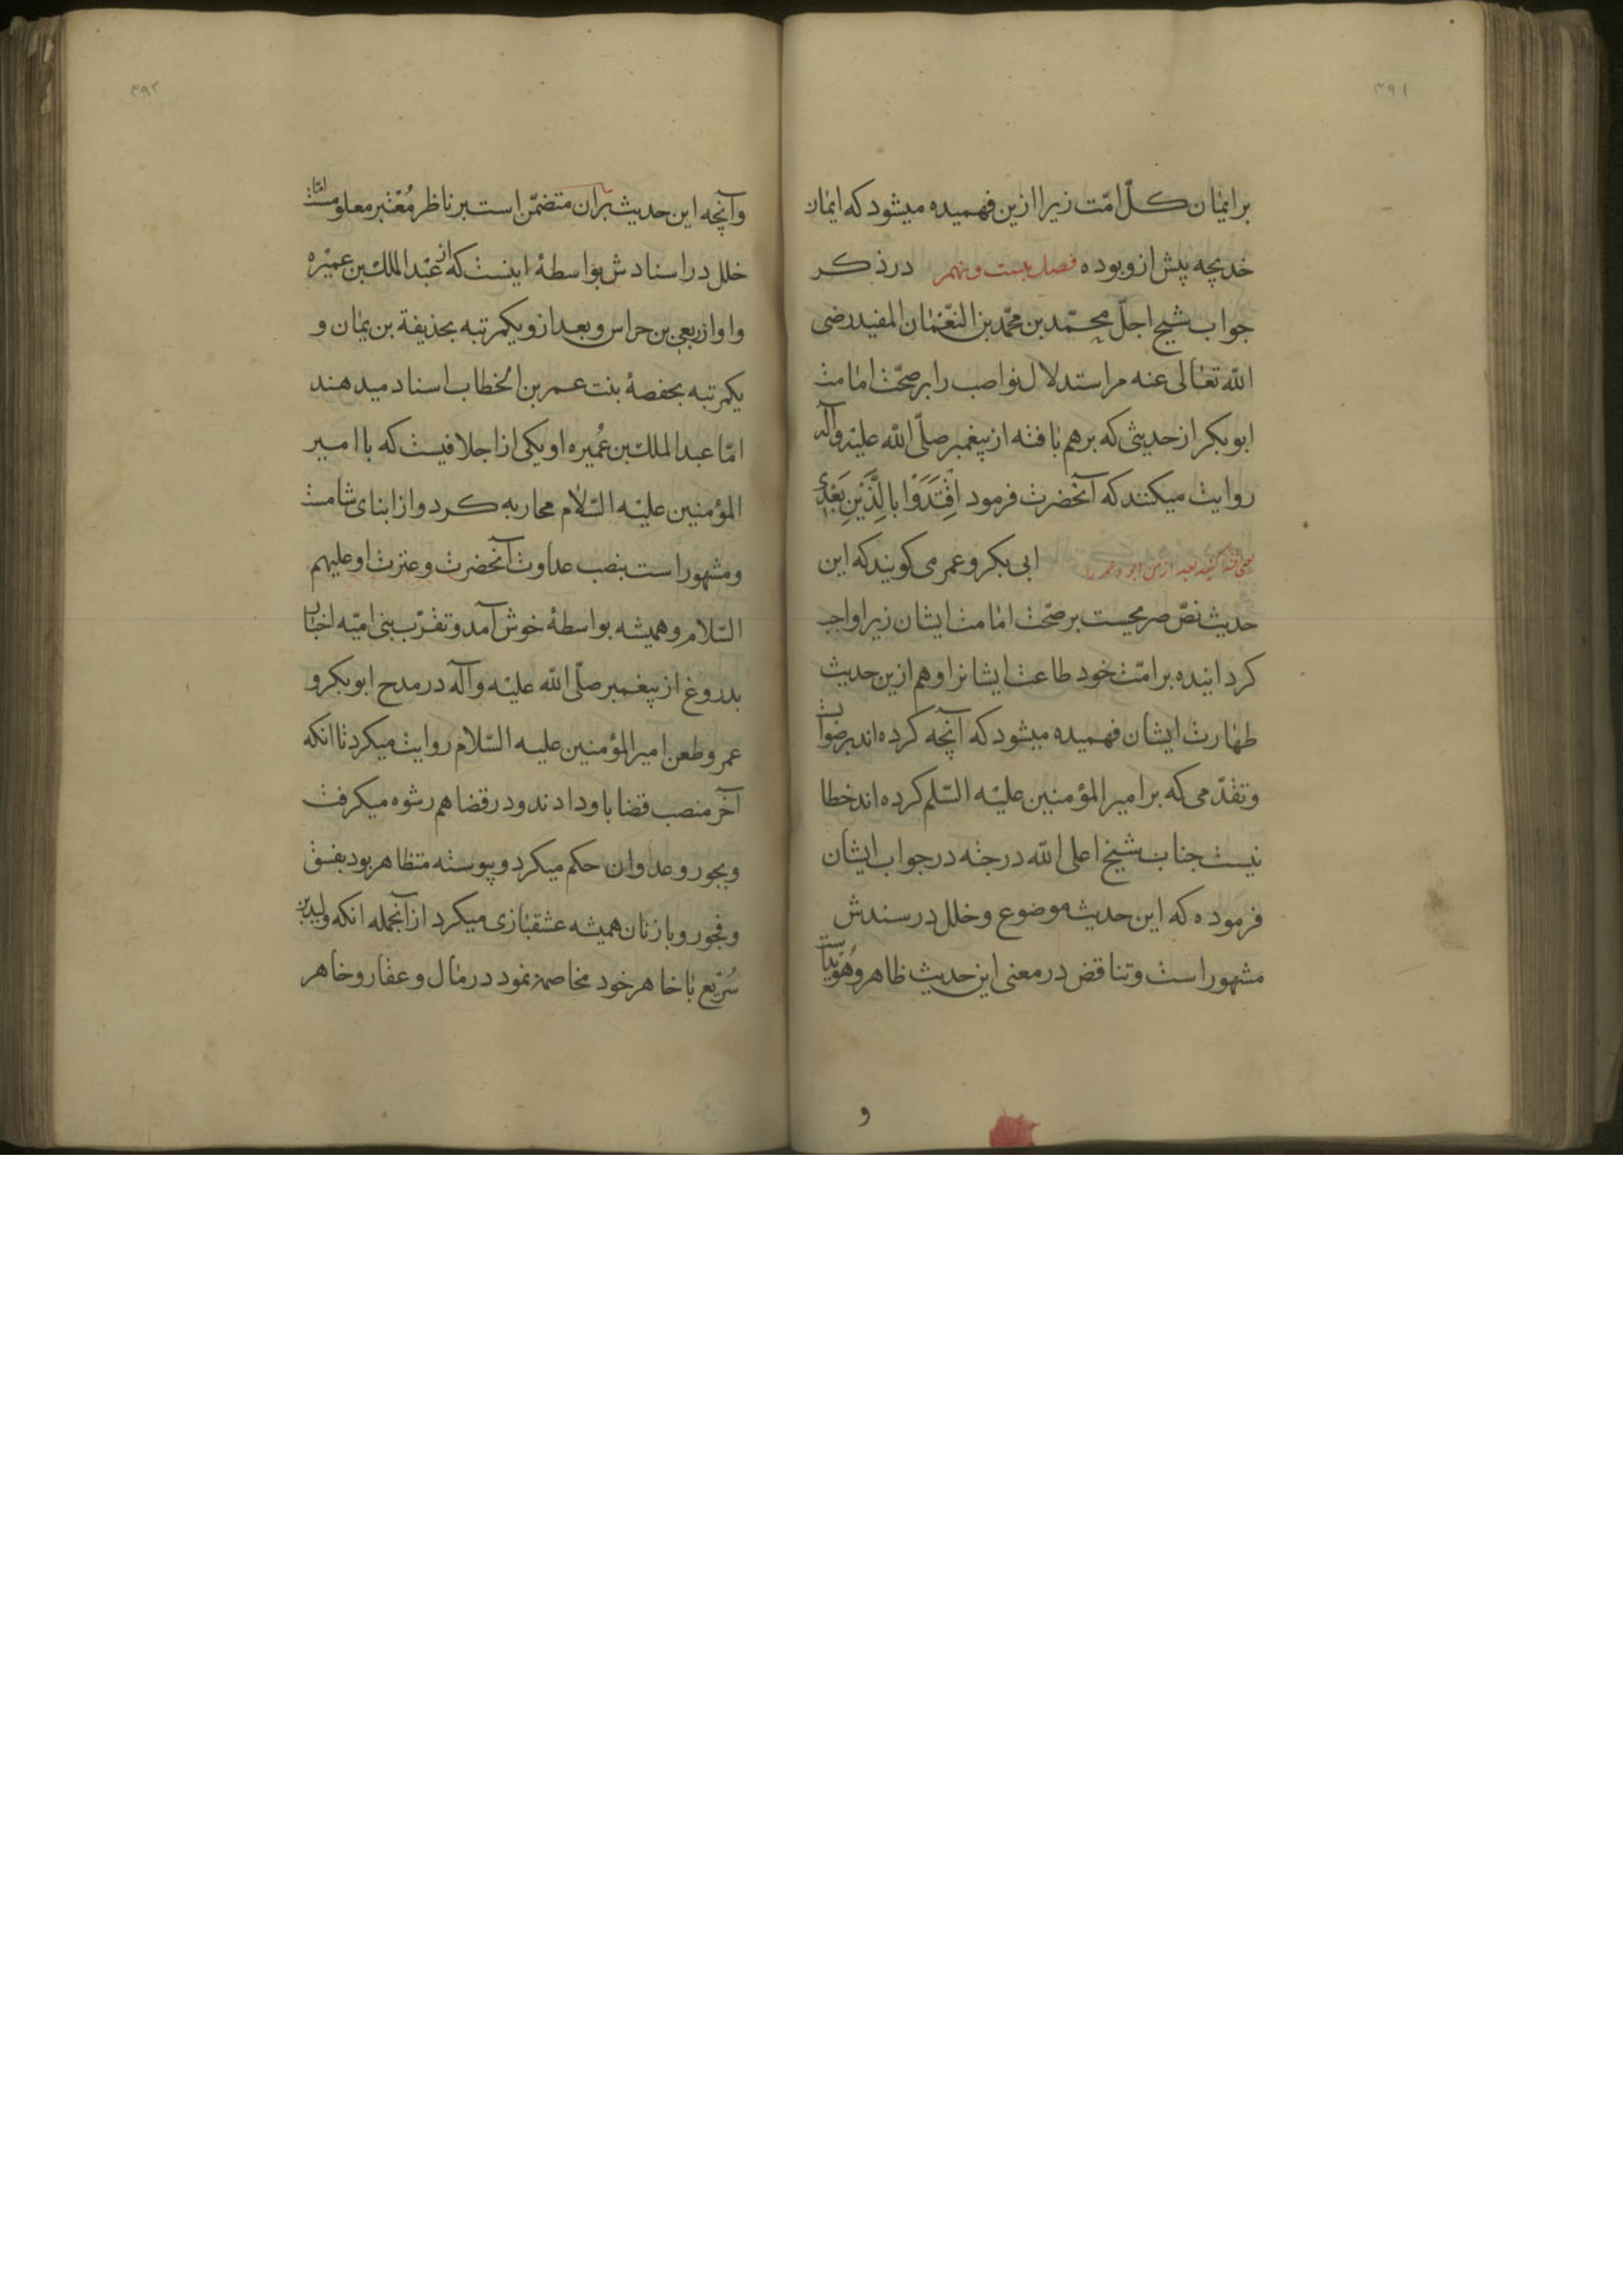 ۳۹۱
بر ایمان کلّ امّت زیرا ازین فهمیده میشود که ایمان
خدیجه پیش ازو بوده فصل بیست و نهم در ذکر
جواب شیخ اجلّ محمّد بن محمّد بن النّعمان المفید رضی
اللّه تعالی عنه مر استدلال نواصب را بر صحّت امامت
ابو بکر از حدیثی که بر هم بافته از پیغمبر صلّی اللّه علیه وآله
روایت میکنند که آنحضرت فرمود اِقْتَدَوْا بِالَّذَیْنِ بَعْدِی
یعنی اقتدا کنید بعد از من ابو و عمر را ابی بکر و عمر می کویند که این
حدیث نصّ صریحیست بر صحّت امامت ایشان زیرا واجب
کردانیده بر امّت خود طاعت ایشانرا و هم ازین حدیث
طهارت ایشان فهمیده میشود که آنچه کرده اند بر صوابست
و تقدّمی که بر امیر المؤمنین علیه السّلم کرده اند خطا
نیست جناب شیخ اعلی اللّه درجته در جواب ایشان
فرموده که این حدیث موضوع و خلل در سندش
مشهور است و تناقض در معنی این حدیث ظاهر و هُوَیداست
و
۳۹۲
و آنچه این حدیث بران متضمّن است بر ناظر مُعْتبر معلومست امّا
خلل در اسنادش بواسطهٔ اینست که از عبد الملک بن عمیره
و او از ربعی بن حراس و بعد ازو یکمرتبه بحذیفة بن یمان و
یکمرتبه بحفصهٔ بنت عمر بن الخطاب اسناد میدهند
امّا عبد الملک بن عُمیره او یکی از اجلافیست که با امیر
المؤمنین علیه السّلام محاربه کرد و از ابنای شامست
و مشهور است بنصب عداوت آنحضرت و عترت او علیهم
السّلام و همیشه بواسطهٔ خوش آمد و تقرّب بنی امیّه اخبار
بدروغ از پیغمبر صلّی اللّه علیه وآله در مدح ابو بکر و
عمر و طعن امیر المؤمنین علیه السّلام روایت میکرد تا انکه
آخر منصب قضا باو دادند و در قضا هم رشوه میکرفت
و بجور و عدوان حکم میکرد و پیوسته متظاهر بود بفسق
و فجور و با زنان همیشه عشقبازی میکرد از آنجمله انکه ولید بن
سُرَیع با خاهر خود مخاصمه نمود در مال و عقار و خاهر